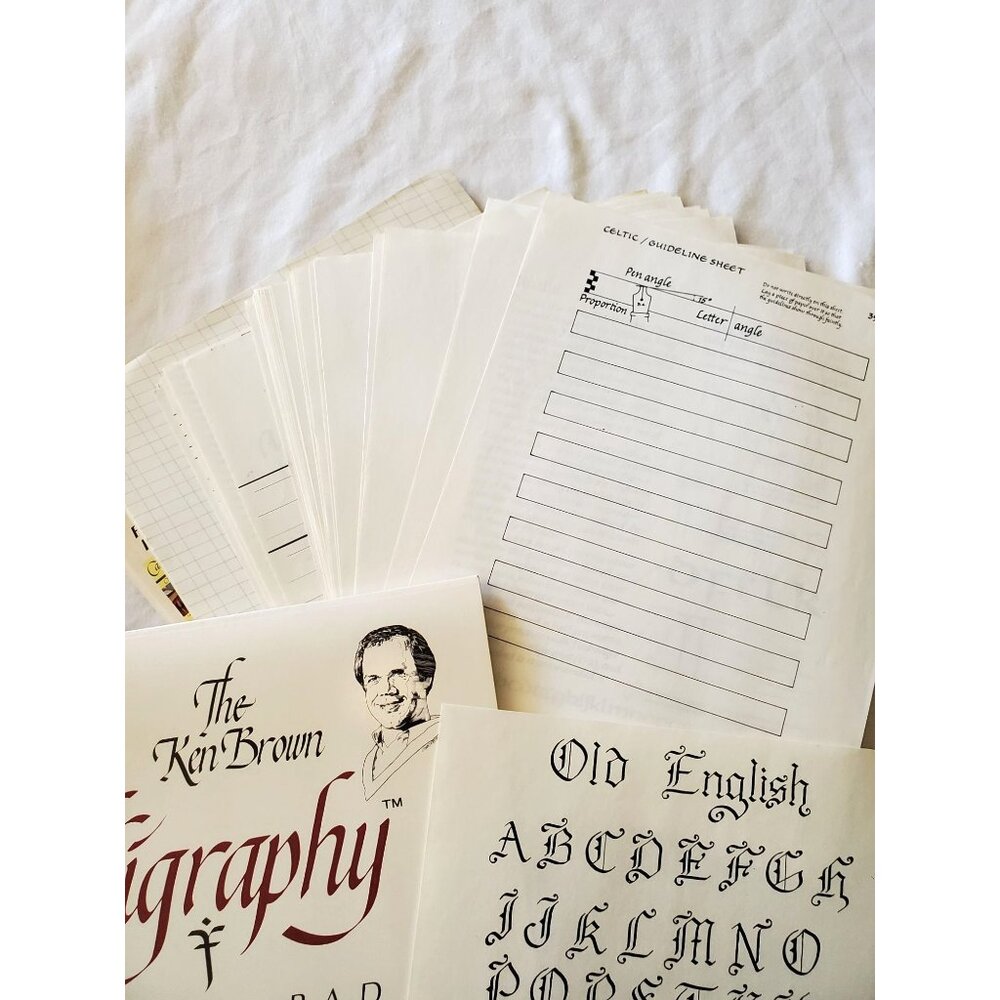 CELTIC / GUIDELINE SHEET
Pen angle
15°
Proportion
Letter angle
Do not write directly on this sheet.
Lay a piece of paper over it so that
the guidelines show through faintly.
The
Ken Brown
igraphy™
PAD
Old English
A B C D E F G H
I J K L M N O
P Q R S T